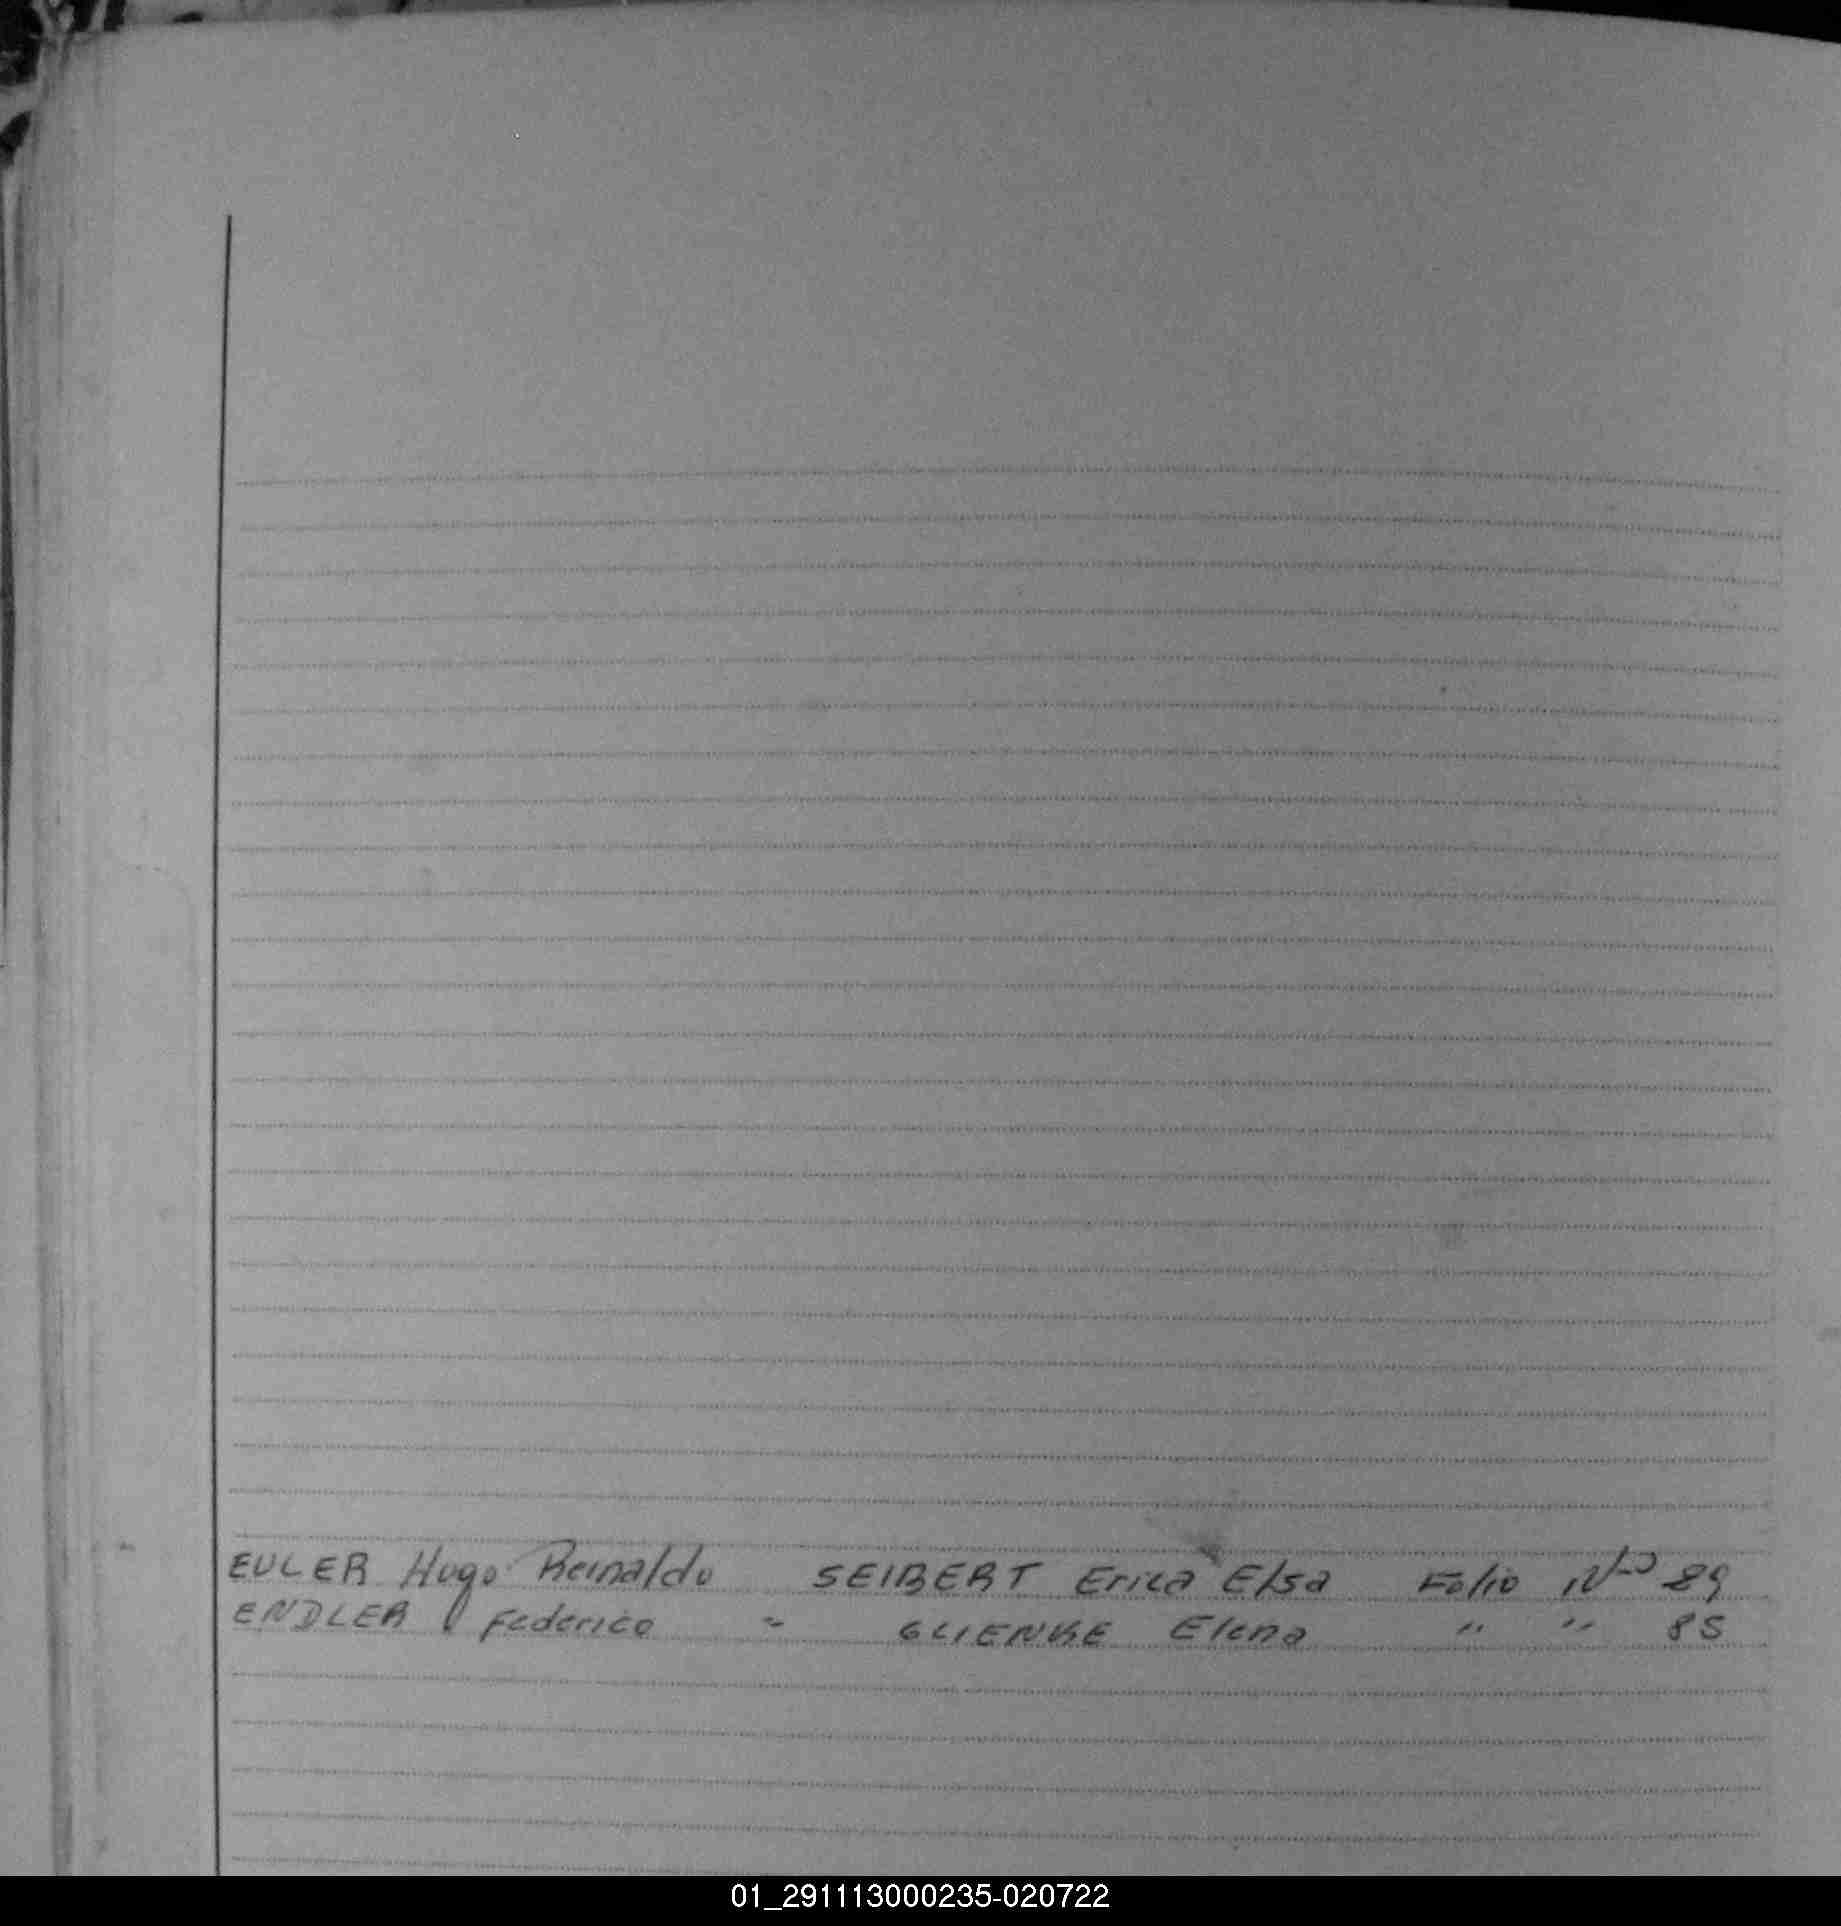 EULER Hugo Reinaldo SEIBERT Erica Elsa Folio Nº 89
ENDLER Federico " GLIENKE Elena " " 85
01_291113000235-020722